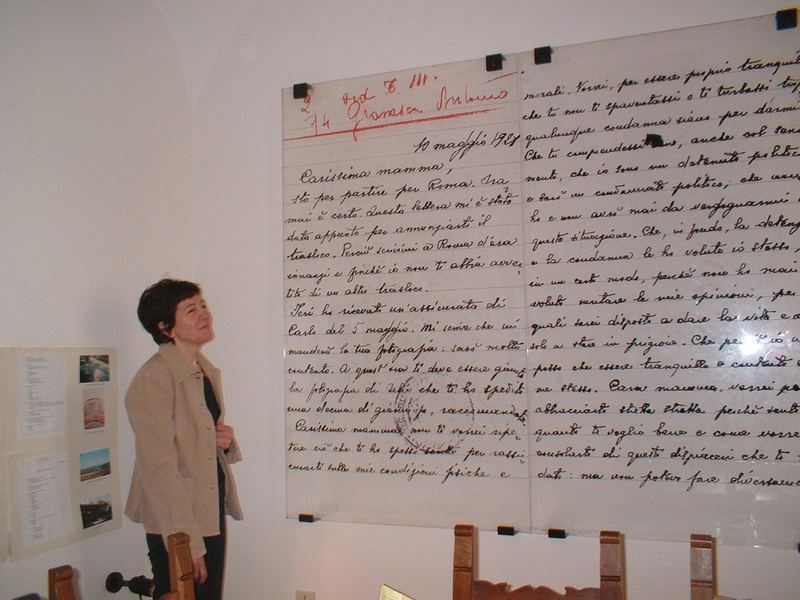 2 III.
14 Gramsci Antonio
10 maggio 1928
Carissima mamma,
sto per partire per Roma. Ora
mai è certo. Questa lettera mi è stata
data appunto per annunziarti il
trasloco. Perciò scrivimi a Roma d'ora
innanzi e finché io non ti abbia avver-
tito di un altro trasloco.
Ieri ho ricevuto un'assicurata di
Carlo del 5 maggio. Mi scrive che mi
manderà la tua fotografia: sarò molto
contento. A quest'ora ti deve essere giunta
la fotografia di Delio che ti ho spedito
una decina di giorni fa, raccomandata.
Carissima mamma, non ti vorrei ripe-
tere ciò che ti ho spesso scritto per rassi-
curarti sulle mie condizioni fisiche e
morali. Vorrei, per essere proprio tranquil
che tu non ti spaventassi o ti turbassi trop
qualunque condanna siano per darmi
Che tu comprendessi bene, anche col sen
mento, che io sono un detenuto politico
e sarò un condannato politico, che non
ho e non avrò mai da vergognarmi di
questa situazione. Che, in fondo, la deten
e la condanna le ho volute io stesso,
in un certo modo, perché non ho mai
voluto mutare le mie opinioni, per
quali sarei disposto a dare la vita e
solo a stare in prigione. Che perciò io
posso che essere tranquillo e contento
me stesso. Cara mamma, vorrei pro
abbracciarti stretta stretta perché senti
quanto ti voglio bene e come vorrei
consolarti di questo dispiacere che ti
dato: ma non potevo fare diversamen